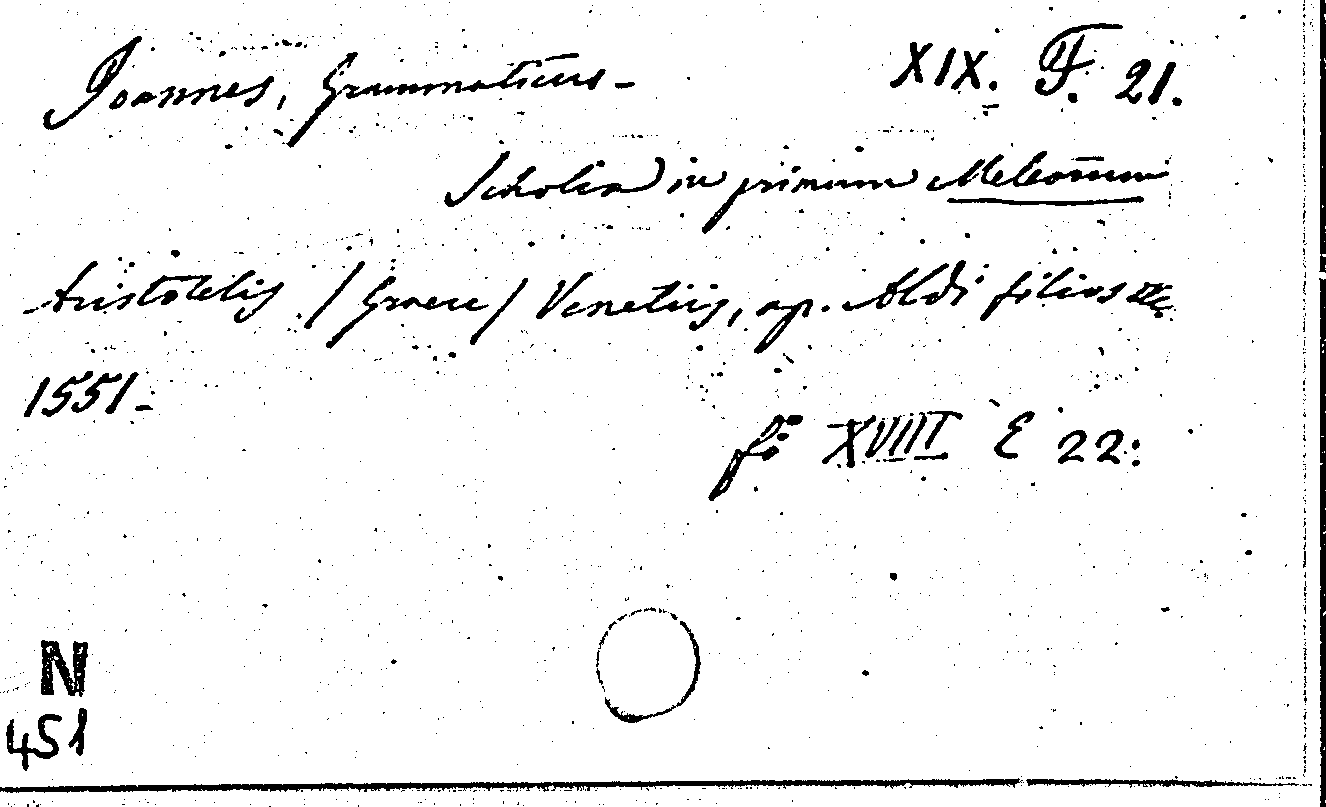 Joannes, Grammaticus - XIX. F. 21.
Scholia in primum Meteorum
Aristotelis / Graece / Venetiis, ap. Aldi filios
1551 -
fo XVIII E 22:
N
451